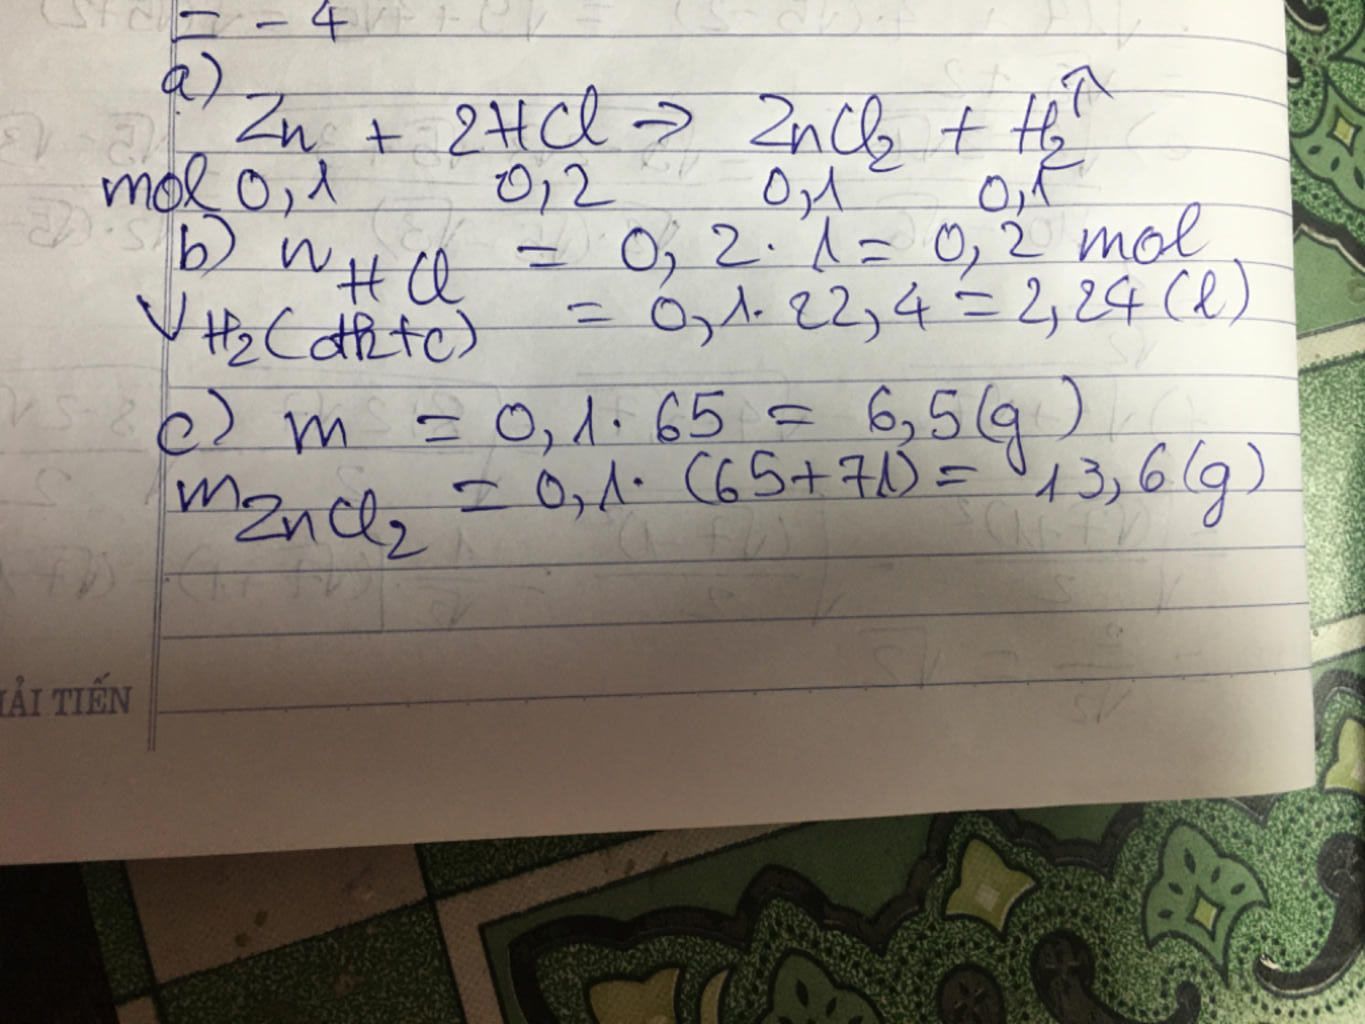 = - 4
a)
Zn + 2HCl → ZnCl₂ + H₂↑
mol 0,1 0,2 0,1 0,1
b) n HCl = 0,2 . 1 = 0,2 mol
V H₂(đktc) = 0,1 . 22,4 = 2,24 (l)
c) m = 0,1 . 65 = 6,5 (g)
m ZnCl₂ = 0,1 . (65+71) = 13,6 (g)
ẢI TIẾN